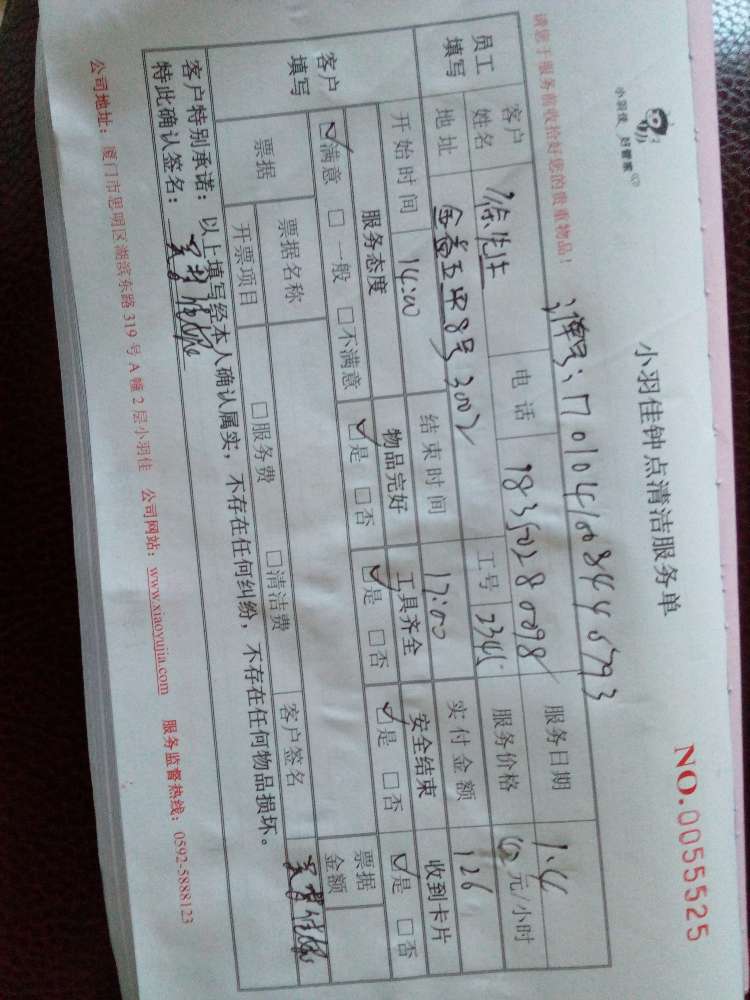 小羽佳 好管家
小羽佳钟点清洁服务单
NO.0055525
请您于服务前收拾好您的贵重物品!
单号:17010410084405793
员工填写 客户姓名 徐先生 电话 18350280098 服务日期 1.4
地址 8号3002 工号 2345 服务价格 40 元/小时
开始时间 14:00 结束时间 17:00 实付金额 126
客户填写 服务态度 物品完好 工具齐全 安全结束 收到卡片
☑满意 □一般 □不满意 ☑是 □否 ☑是 □否 ☑是 □否 ☑是 □否
票据 票据名称 票据金额
开票项目 □服务费 □清洁费 客户签名
客户特别承诺:以上填写经本人确认属实,不存在任何纠纷,不存在任何物品损坏。
特此确认签名:
公司地址:厦门市思明区湖滨东路319号A幢2层小羽佳 公司网站:www.xiaoyujia.com 服务监督热线:0592-5888123